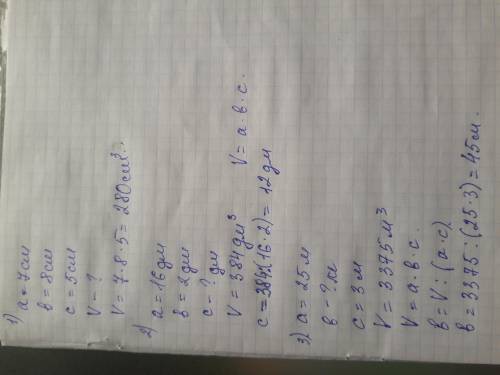 1) a = 7см
в = 8см
с = 5см
V = ?
V = 7 · 8 · 5 = 280 см³.
2) a = 16 дм
в = 2 дм
с = ? дм
V = 384 дм³ V = a · в · с.
с = 384:(16 · 2) = 12 дм
3) a = 25 м
в = ? м
с = 3 м
V = 3375 м³
V = a · в · с.
в = V : (a · с)
в = 3375 : (25 · 3) = 45 см.